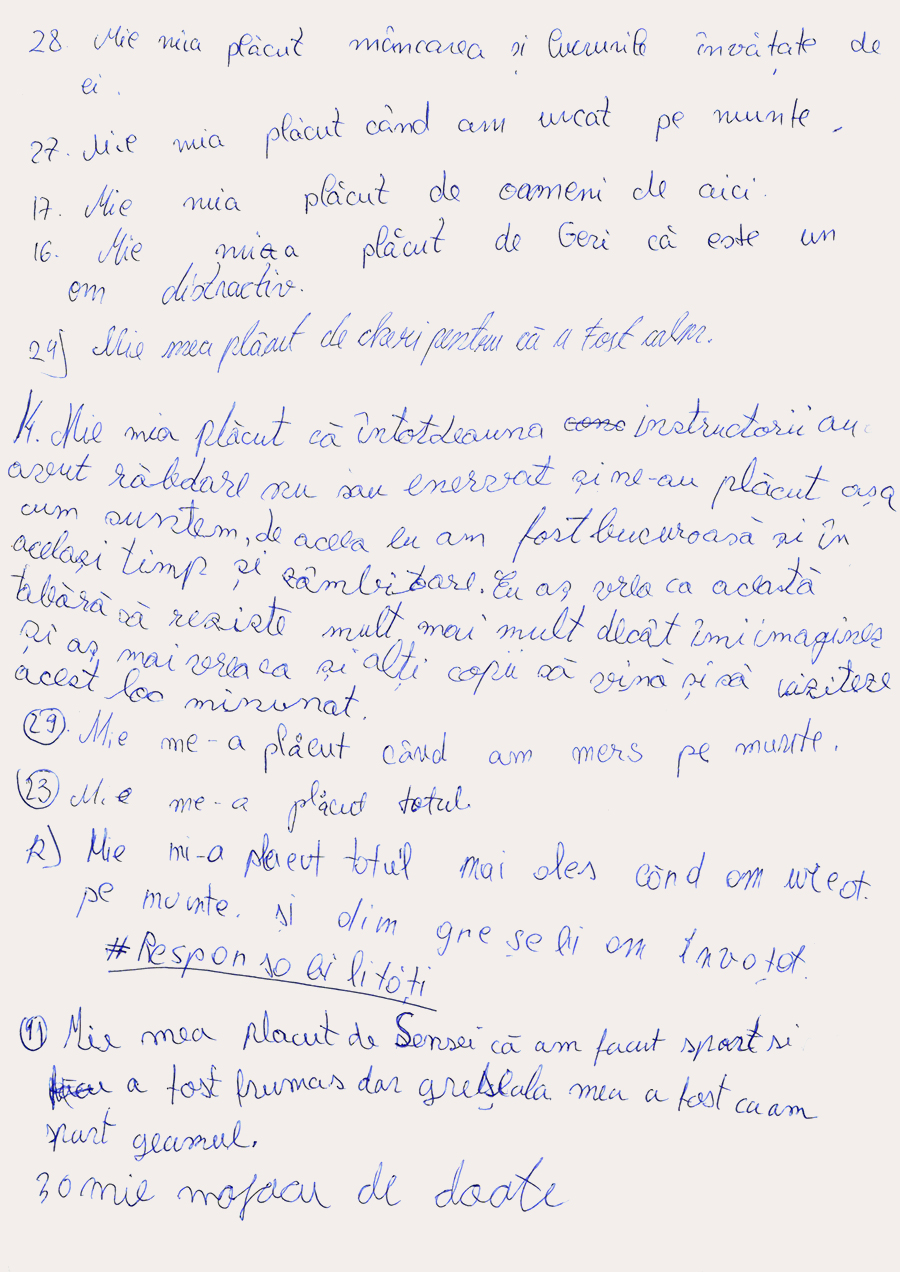 28. Mie mia plăcut mâncarea și lucrurile învățate de
ei.
27. Mie mia plăcut când am urcat pe munte.
17. Mie mia plăcut de oameni de aici.
16. Mie mia plăcut de Geri că este un
om distractiv.
24) Mie mea plăcut de cheri pentru că a fost calm.
14. Mie mia plăcut că întotdeauna instructorii au
avut răbdare nu sau enervat și ne-au plăcut așa
cum suntem, de aceea eu am fost bucuroasă și în
același timp și zâmbitoare. Eu aș vrea ca această
tabără să reziste mult mai mult decât îmi imaginez
și aș mai vrea ca și alți copii să vină și să viziteze
acest loc minunat.
29. Mie me-a plăcut când am mers pe munte.
23 Mie me-a plăcut totul.
12) Mie mi-a placut totul mai ales când am urcat
pe munte. și dim greșeli am învațat
#Responsabilități
11 Mie mea placut de Sensei că am facut sport si
a fost frumas dar greșeala mea a fost ca am
spart geamul.
30 mie de doate